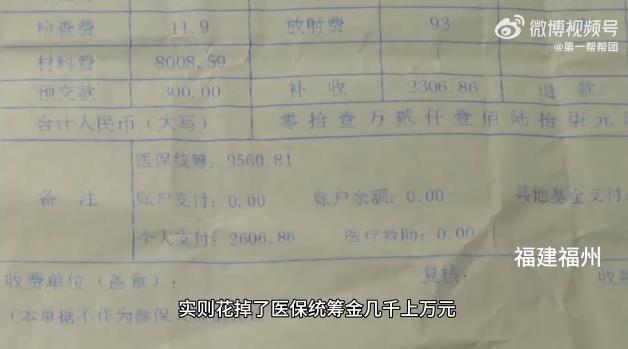 检查费 11.9 放射费 93
微博视频号
@第一帮帮团
材料费 8008.59
预交款 300.00 补 收 2306.86 退 款
合计人民币（大写） 零拾壹万贰仟壹佰陆拾柒元
医保统筹：9560.81
备 注 账户支付：0.00 账户余额：0.00 其他基金支付：
个人支付：2606.86 医疗救助：0.00
福建福州
收费单位（盖章）： 复核： 收
实则花掉了医保统筹金几千上万元
（本单据不作为